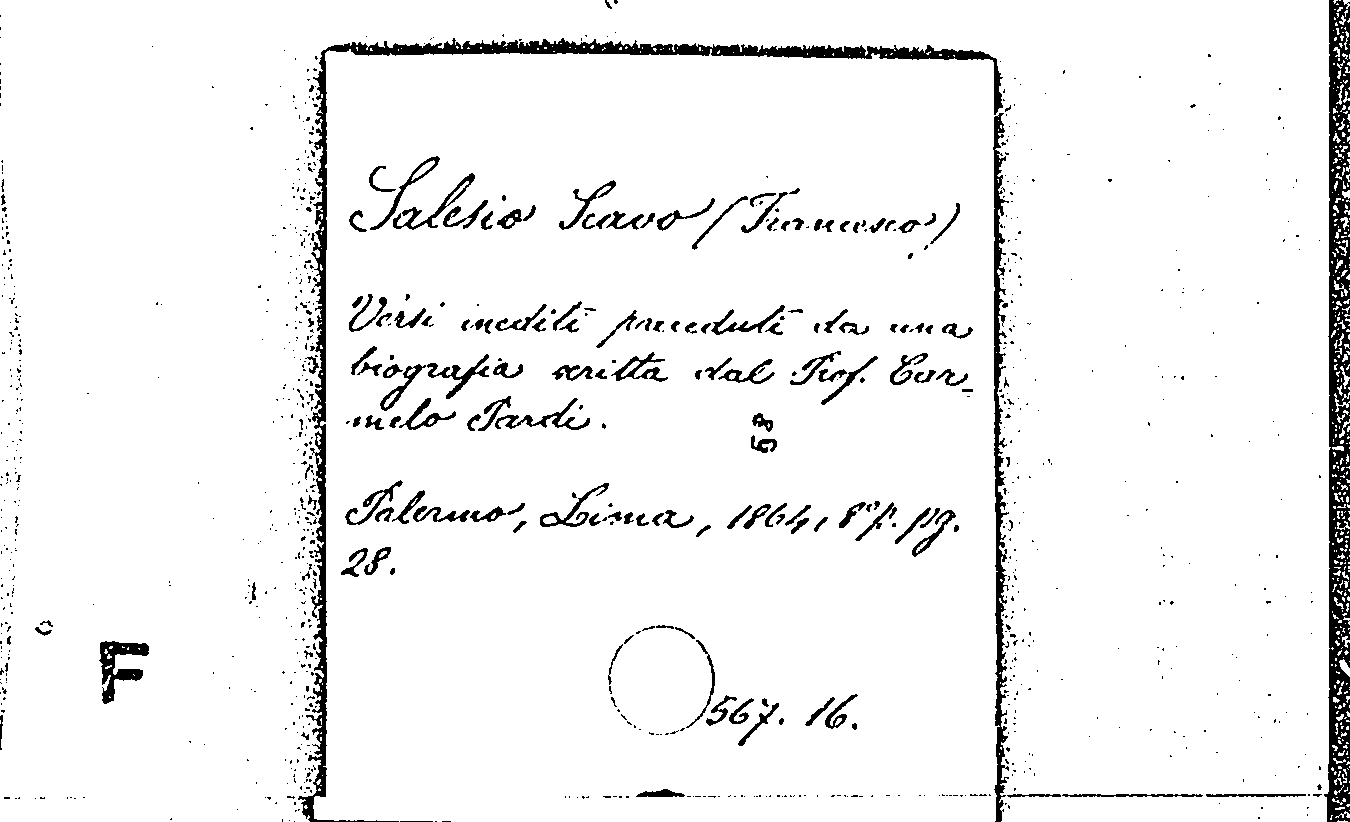 Salesio Scavo (Francesco)
Versi inediti preceduti da una
biografia scritta dal Prof. Car-
melo Pardi.
58
Palermo, Lima, 1864, 8° p. pg.
28.
F
567. 16.